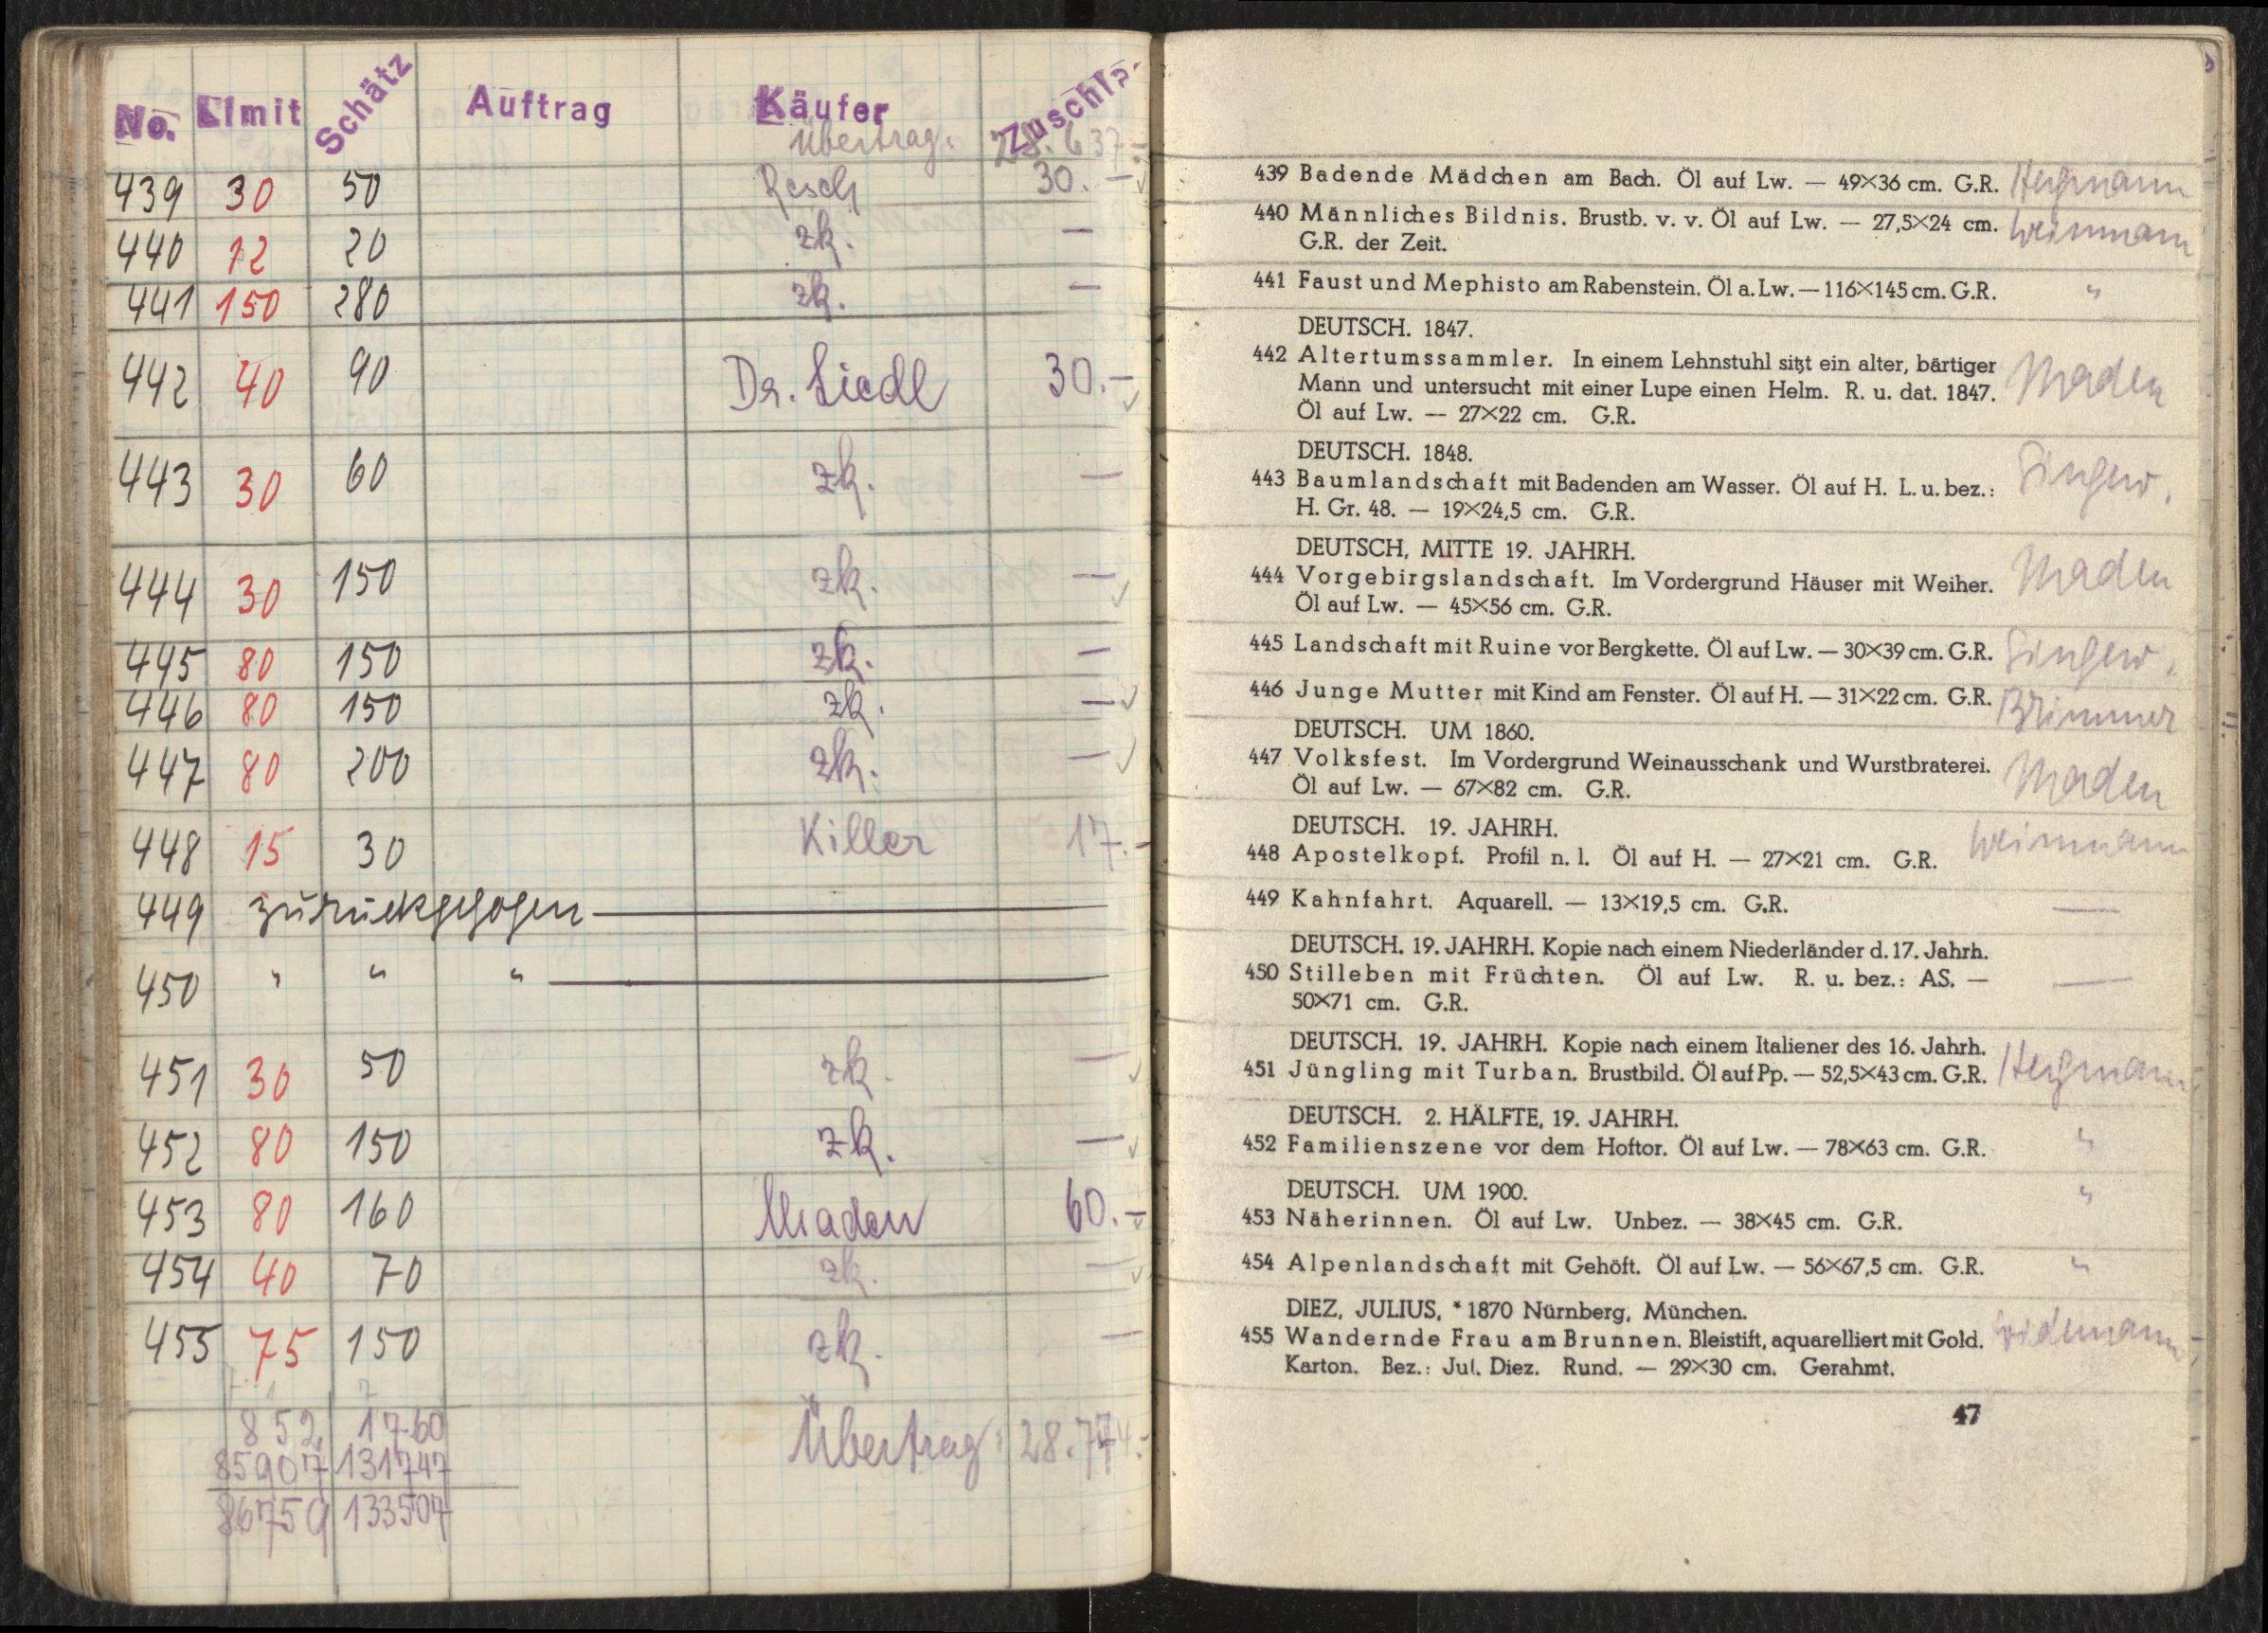 No. Limit Schätz Auftrag Käufer Zuschl.
Übertrag: 28.637.-
439 30 50 Resch 30.-
440 12 20 zk. —
441 150 280 zk. —
442 40 90 Dr. Liedl 30.-
443 30 60 zk. —
444 30 150 zk. —
445 80 150 zk. —
446 80 150 zk. —
447 80 200 zk. —
448 15 30 Killer 17.-
449 zurückgezogen —
450 " " " —
451 30 50 zk. —
452 80 150 zk. —
453 80 160 Maden 60.-
454 40 70 zk. —
455 75 150 zk. —
852 1760
85907 131747
86759 133507
Übertrag: 28.774.-
439 Badende Mädchen am Bach. Öl auf Lw. — 49×36 cm. G.R.
440 Männliches Bildnis. Brustb. v. v. Öl auf Lw. — 27,5×24 cm. Weinmann
G.R. der Zeit.
441 Faust und Mephisto am Rabenstein. Öl a. Lw. — 116×145 cm. G.R. "
DEUTSCH. 1847.
442 Altertumssammler. In einem Lehnstuhl sitzt ein alter, bärtiger Maden
Mann und untersucht mit einer Lupe einen Helm. R. u. dat. 1847.
Öl auf Lw. — 27×22 cm. G.R.
DEUTSCH. 1848.
443 Baumlandschaft mit Badenden am Wasser. Öl auf H. L. u. bez.: Singer.
H. Gr. 48. — 19×24,5 cm. G.R.
DEUTSCH, MITTE 19. JAHRH.
444 Vorgebirgslandschaft. Im Vordergrund Häuser mit Weiher. Maden
Öl auf Lw. — 45×56 cm. G.R.
445 Landschaft mit Ruine vor Bergkette. Öl auf Lw. — 30×39 cm. G.R. Singer.
446 Junge Mutter mit Kind am Fenster. Öl auf H. — 31×22 cm. G.R. Brimmer
DEUTSCH. UM 1860.
447 Volksfest. Im Vordergrund Weinausschank und Wurstbraterei. Maden
Öl auf Lw. — 67×82 cm. G.R.
DEUTSCH. 19. JAHRH.
448 Apostelkopf. Profil n. l. Öl auf H. — 27×21 cm. G.R. Weinmann
449 Kahnfahrt. Aquarell. — 13×19,5 cm. G.R. —
DEUTSCH. 19. JAHRH. Kopie nach einem Niederländer d. 17. Jahrh.
450 Stilleben mit Früchten. Öl auf Lw. R. u. bez.: AS. — —
50×71 cm. G.R.
DEUTSCH. 19. JAHRH. Kopie nach einem Italiener des 16. Jahrh.
451 Jüngling mit Turban. Brustbild. Öl auf Pp. — 52,5×43 cm. G.R.
DEUTSCH. 2. HÄLFTE, 19. JAHRH.
452 Familienszene vor dem Hoftor. Öl auf Lw. — 78×63 cm. G.R. "
DEUTSCH. UM 1900. "
453 Näherinnen. Öl auf Lw. Unbez. — 38×45 cm. G.R.
454 Alpenlandschaft mit Gehöft. Öl auf Lw. — 56×67,5 cm. G.R. "
DIEZ, JULIUS, * 1870 Nürnberg, München.
455 Wandernde Frau am Brunnen. Bleistift, aquarelliert mit Gold. Widemann
Karton. Bez.: Jul. Diez. Rund. — 29×30 cm. Gerahmt.
47